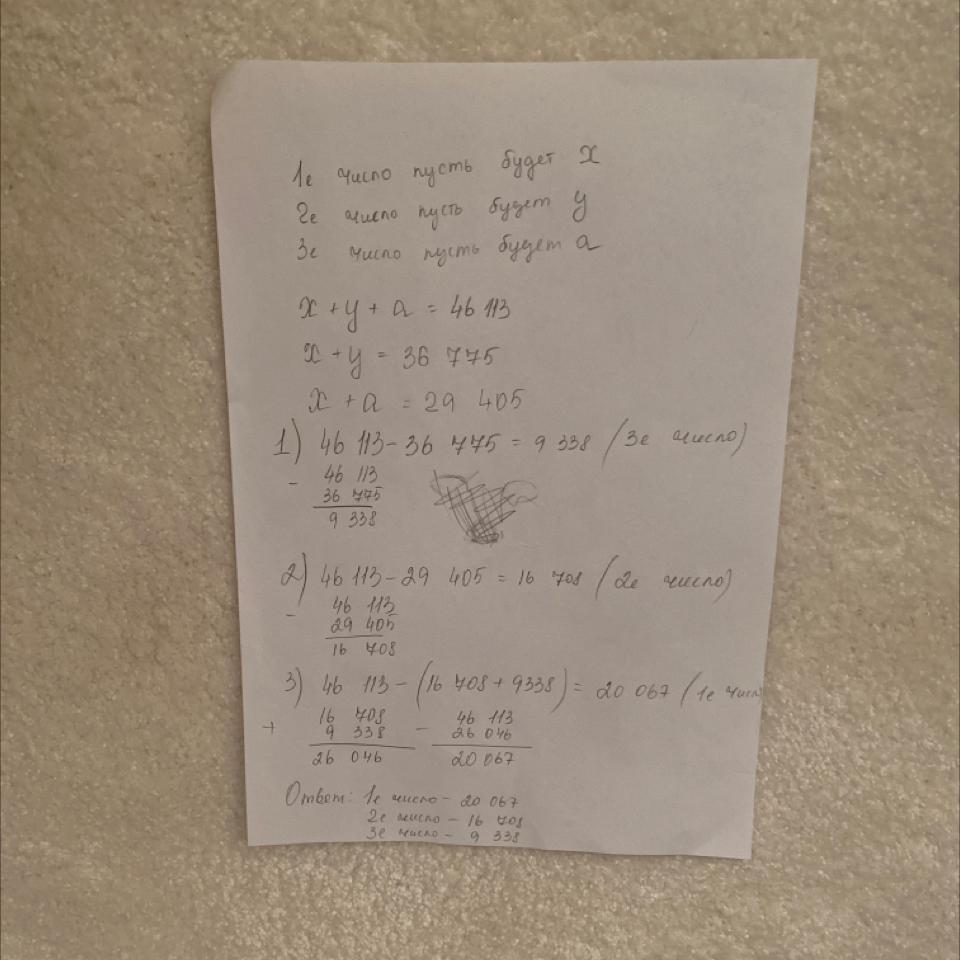 1е число пусть будет x
2е число пусть будет y
3е число пусть будет a
x + y + a = 46 113
x + y = 36 775
x + a = 29 405
1) 46 113 - 36 775 = 9 338 (3е число)
- 46 113
36 775
9 338
2) 46 113 - 29 405 = 16 708 (2е число)
- 46 113
29 405
16 708
3) 46 113 - (16 708 + 9338) = 20 067 (1е число
+ 16 708 - 46 113
9 338 26 046
26 046 20 067
Ответ: 1е число - 20 067
2е число - 16 708
3е число - 9 338